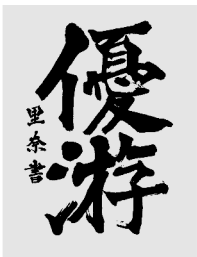 優游
里奈書